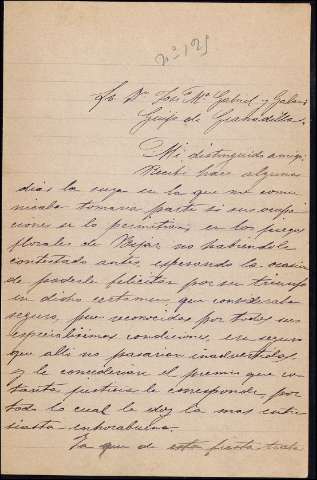 nº 125
Sr. Dn. José Mª Gabriel y Galan
Guijo de Granadilla.
Mi distinguido amigo:
Recibí hace algunos
días la suya en la que me comu
nicaba tomaria parte si sus ocupa
ciones se lo permitian, en los juegos
florales de Bejar no habiendole
contestado antes esperando la ocasión
de poderle felicitar por su triunfo
en dicho certamen, que consideraba
seguro, pues reconocidas por todos sus
especialisimas condiciones, era seguro
que alli no pasarian inadvertidas
y le concederian el premio que con
tanta justicia le corresponde, por
todo lo cual le doy la mas entu
siasta enhorabuena.
Ya que de esta fiesta trato